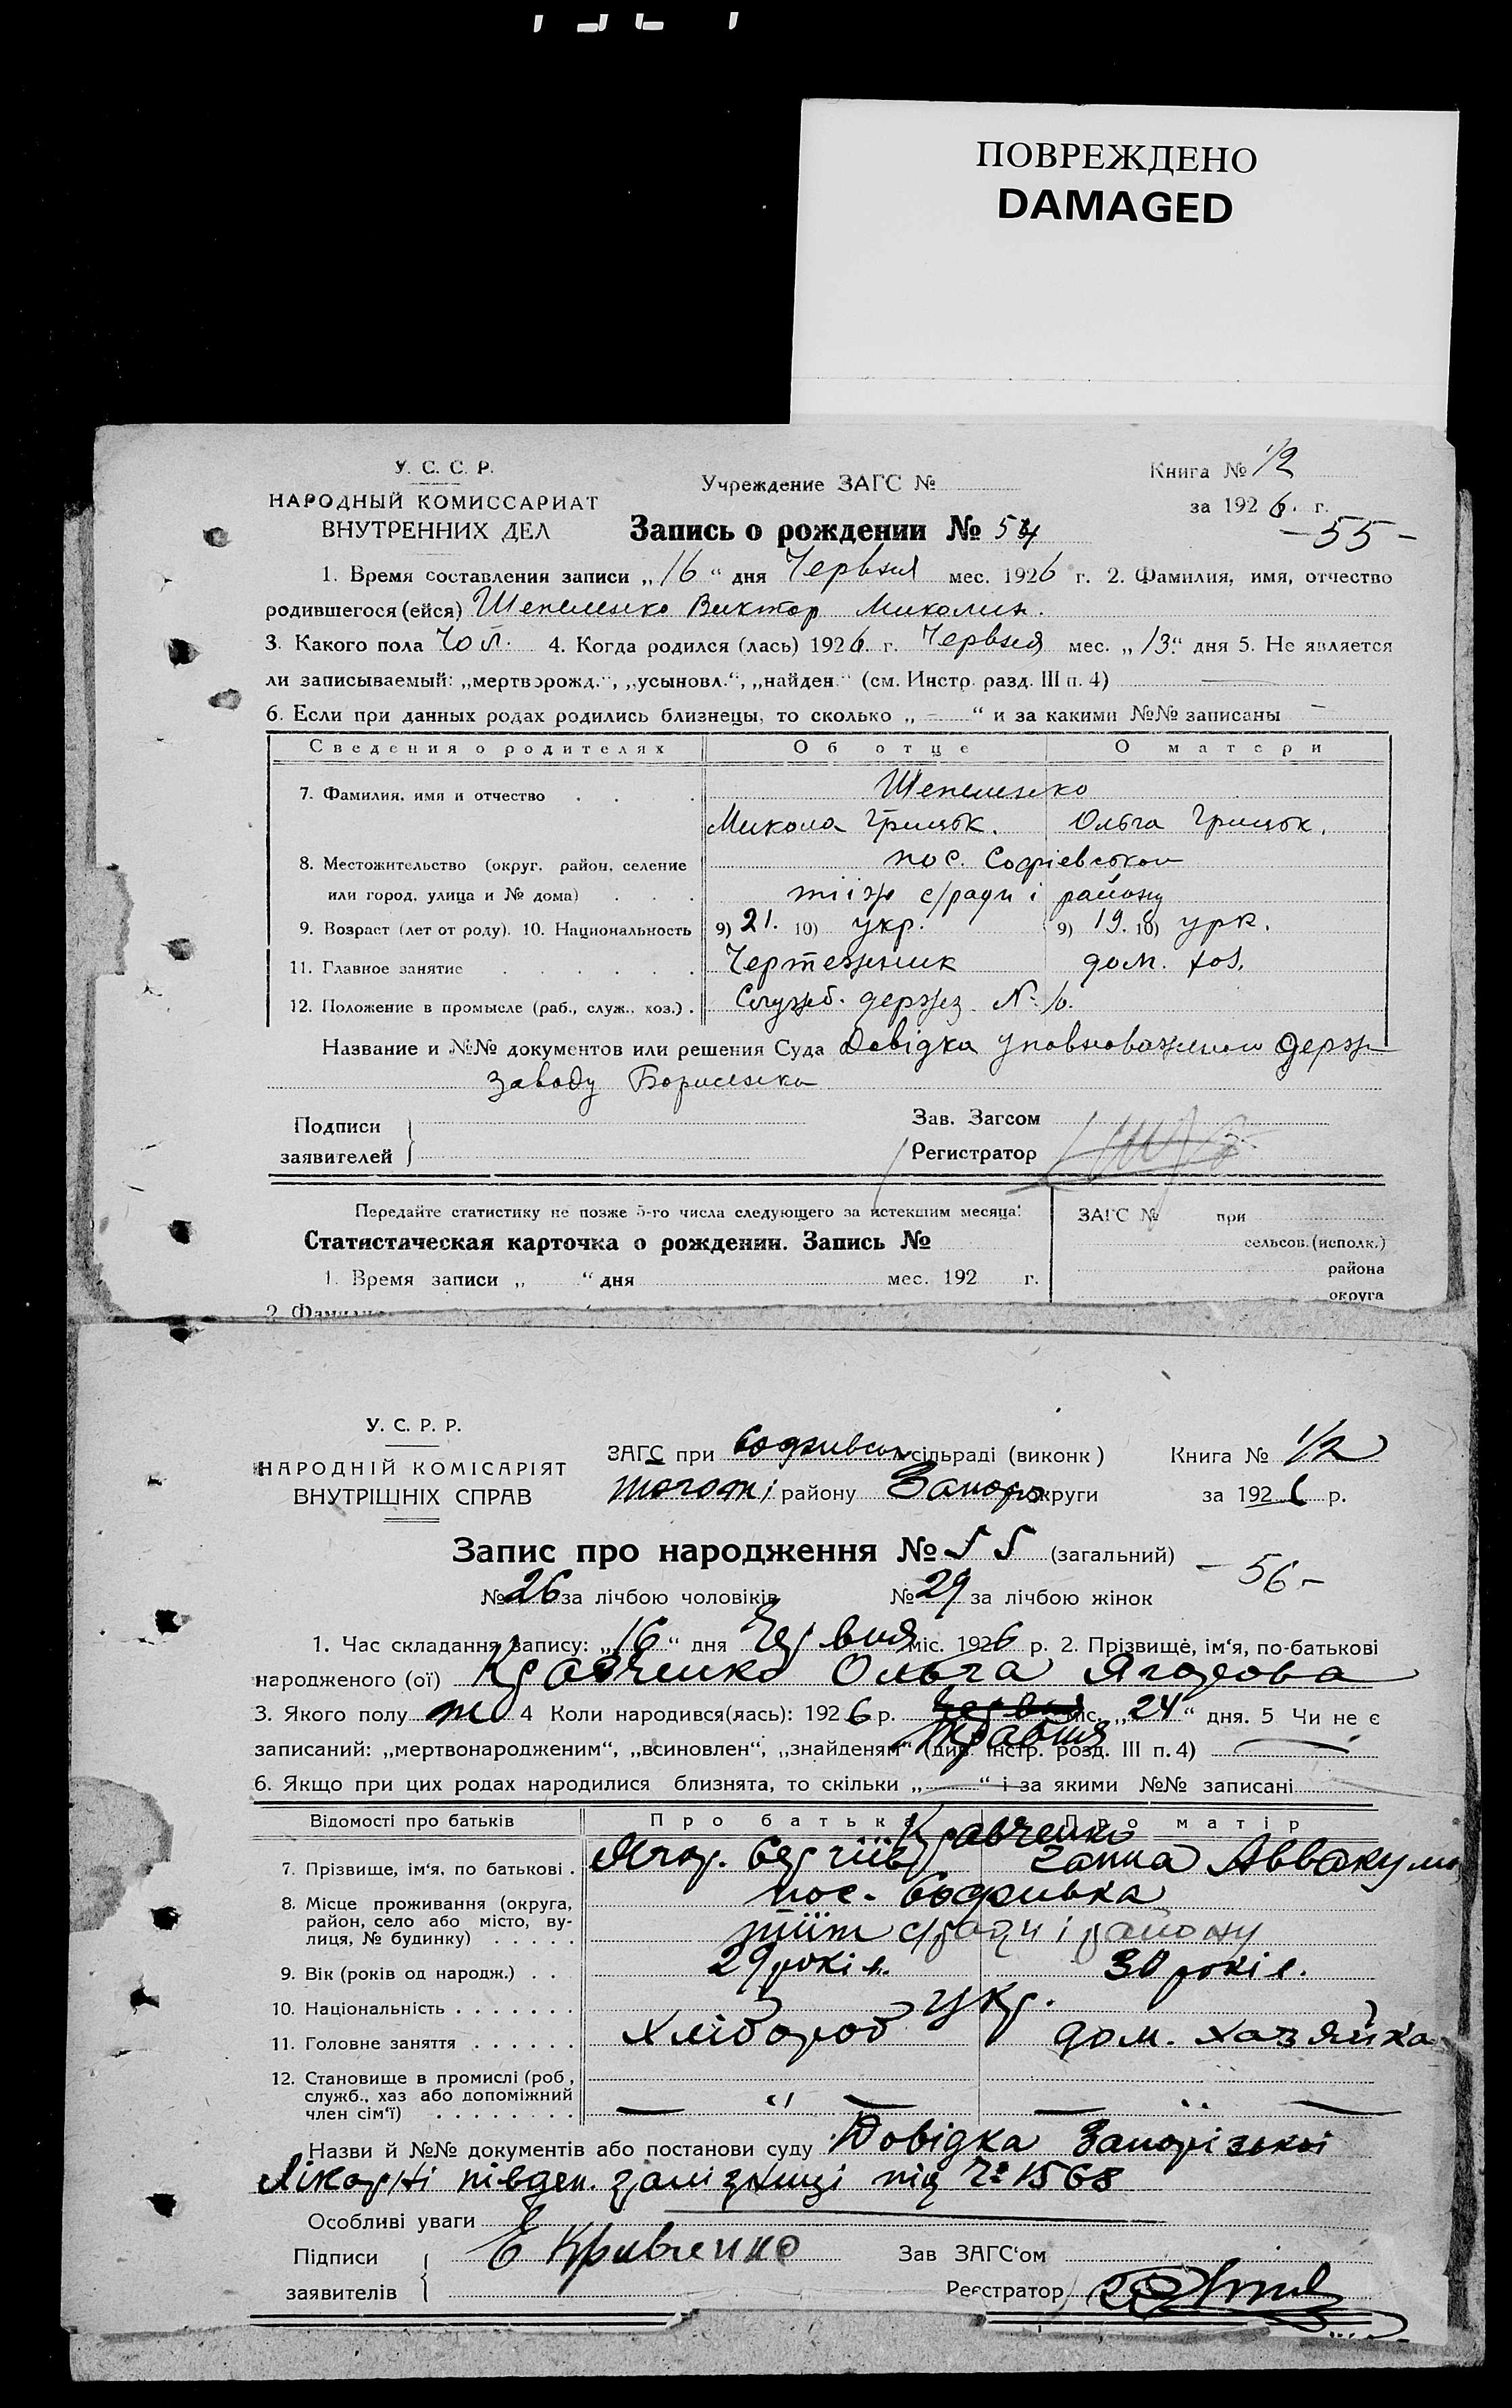 ПОВРЕЖДЕНО
DAMAGED
У. С. С. Р.
НАРОДНЫЙ КОМИССАРИАТ
ВНУТРЕННИХ ДЕЛ
Учреждение ЗАГС №
Книга № 1/2
за 1926. г.
Запись о рождении № 54
- 55 -
1. Время составления записи „16“ дня Червня мес. 1926 г. 2. Фамилия, имя, отчество
родившегося (ейся) Шепеленко Виктор Миколич.
3. Какого пола Чол. 4. Когда родился (лась) 1926. г. Червня мес. „13.“ дня 5. Не является
ли записываемый: „мертворожд.“, „усыновл.“, „найден.“ (см. Инстр. разд. III п. 4)
6. Если при данных родах родились близнецы, то сколько „ - “ и за какими №№ записаны -
Сведения о родителях Об отце О матери
7. Фамилия, имя и отчество Шепеленко
Микола Грицьк. Ольга Грицьк.
8. Местожительство (округ, район, селение пос. Софіевської
или город, улица и № дома) тііж с/ради і району
9. Возраст (лет от роду). 10. Национальность 9) 21. 10) укр. 9) 19. 10) урк.
11. Главное занятие Чертежник дом. хоз.
12. Положение в промысле (раб., служ., хоз.) Служб. держз. № 6.
Название и №№ документов или решения Суда Довідка уповноваженого Держ
заводу Борисенка
Подписи
заявителей
Зав. Загсом
Регистратор
Передайте статистику не позже 5-го числа следующего за истекшим месяца!
Статистическая карточка о рождении. Запись №
1. Время записи „ “ дня мес. 192 г.
ЗАГС № при
сельсов. (исполк.)
района
округа
2. Фамилия
У. С. Р. Р.
НАРОДНІЙ КОМІСАРІЯТ
ВНУТРІШНІХ СПРАВ
ЗАГС при Софиївськ сільраді (виконк)
тогож району Запоро округи
Книга № 1/2
за 1926 р.
Запис про народження № 55 (загальний)
- 56 -
№ 26 за лічбою чоловіків № 29 за лічбою жінок
1. Час складання запису: „16“ дня Червня міс. 1926 р. 2. Прізвище, ім‘я, по-батькові
народженого (ої) Кравченко Ольга Ягорова
3. Якого полу ж 4 Коли народився(лась): 1926 р. червня міс. „24“ дня. 5 Чи не є
Травня
записаний: „мертвонародженим“, „всиновлен“, „знайденям“ (див. Інстр. розд. III п. 4)
6. Якщо при цих родах народилися близнята, то скільки „ “ і за якими №№ записані
Відомості про батьків Про батька Про матір
Кравченко
7. Прізвище, ім‘я, по батькові. Ягор. Сергіїв Ганна Аввакумо
8. Місце проживання (округа, район, село або місто, вулиця, № будинку) пос. Софиивка
тіїж с/ради і району
9. Вік (років од народж.) 29 років. 30 років.
10. Національність укр.
11. Головне заняття Хлібороб дом. хазяйка
12. Становище в промислі (роб,
служб., хаз або допоміжний
член сім‘ї)
Назви й №№ документів або постанови суду Довідка Запорізької
Лікарні півден. залізниці під № 1568
Особливі уваги
Підписи
заявителів
Е Кривченко
Зав ЗАГС‘ом
Реєстратор